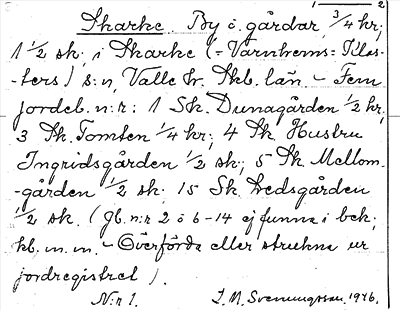 1 2
Skarke. By o. gårdar 3/4 kr;
1 1/2 sk. i Skarke (= Varnhems = Klos-
-ters) s:n, Valle hr. Skb. län. - Fem
jordeb. n:r: 1 Sk. Dunagården 1/2 kr,
3 Sk. Tomten 1/4 kr; 4 Sk Hustru
Ingridsgården 1/2 sk; 5 Sk. Mellom-
-gården 1/2 sk. 15 Sk. Nedsgården
1/2 sk. (Jb. n:r 2 o 6-14 ej funna i bek.,
kb. m. m. - Överförda eller strukna ur
jordregistret).
N:r 1. J. M. Svenungsson. 1946.